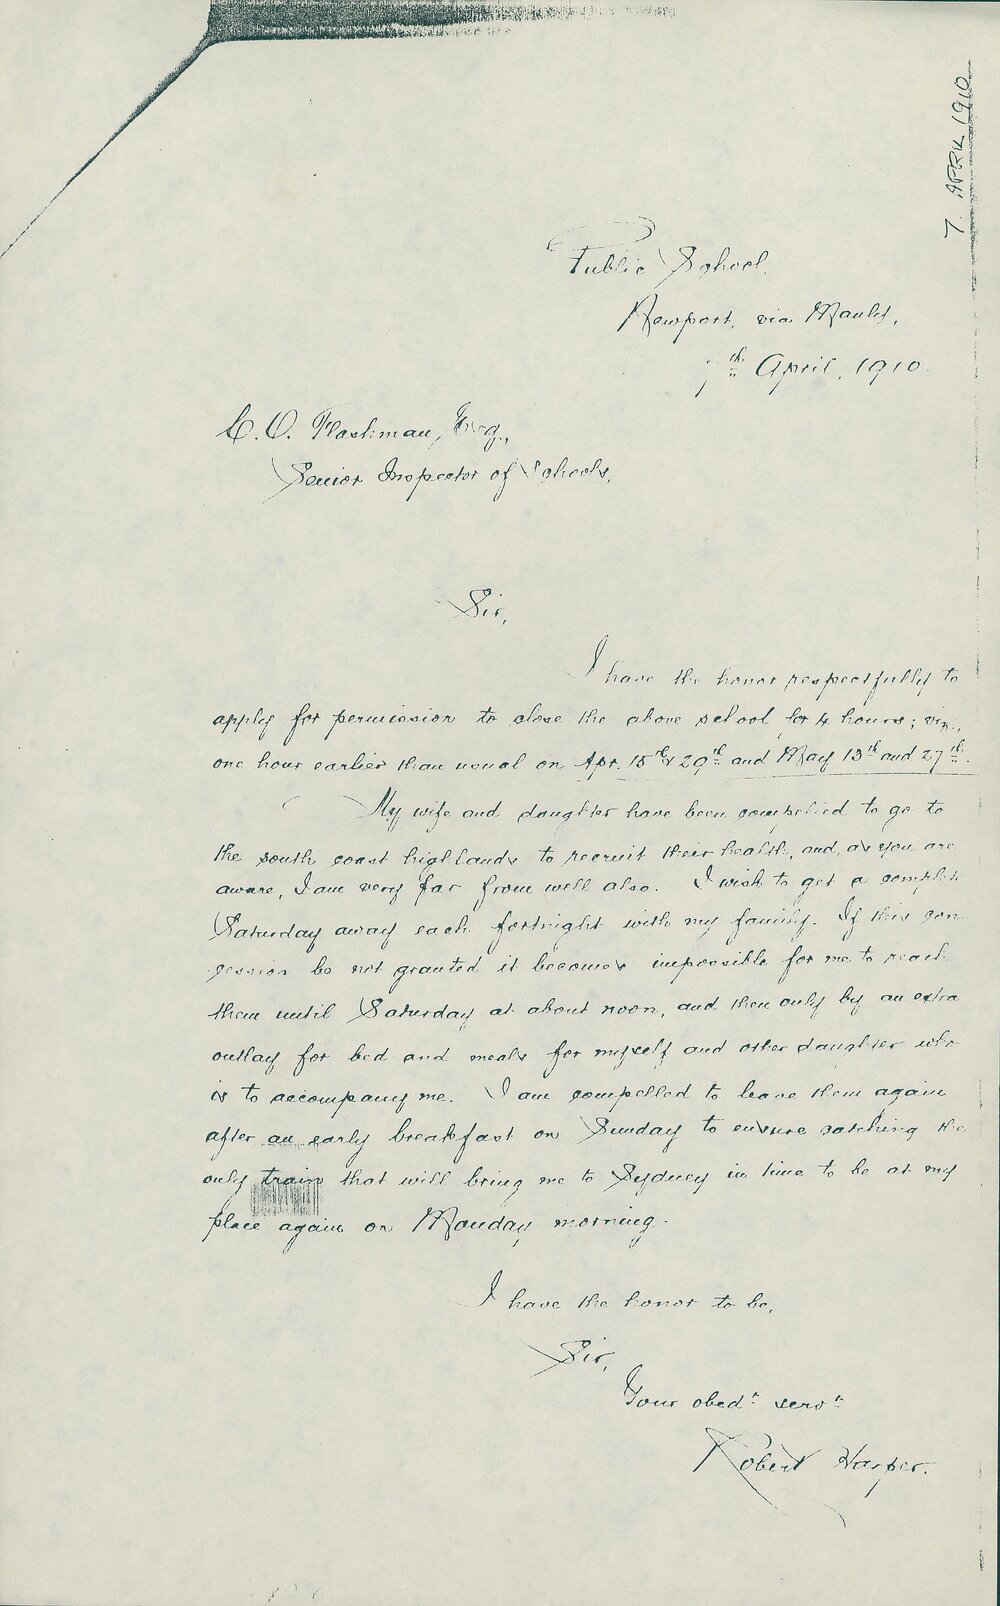 7. APRIL 1910
Public School,
Newport, via Manly,
7th April, 1910.
C. O. Flashman, Esq.,
Senior Inspector of Schools,
Sir,
I have the honor respectfully to
apply for permission to close the above school for 4 hours; viz.,
one hour earlier than usual on Apr. 15th & 29th and May 13th and 27th.
My wife and daughter have been compelled to go to
the south coast highlands to recruit their health, and, as you are
aware, I am very far from well also. I wish to get a complete
Saturday away each fortnight with my family. If this con-
cession be not granted it becomes impossible for me to reach
them until Saturday at about noon, and then only by an extra
outlay for bed and meals for myself and other daughter who
is to accompany me. I am compelled to leave them again
after an early breakfast on Sunday to ensure catching the
only train that will bring me to Sydney in time to be at my
place again on Monday morning.
I have the honor to be,
Sir,
Your obedt servt
Robert Harper.